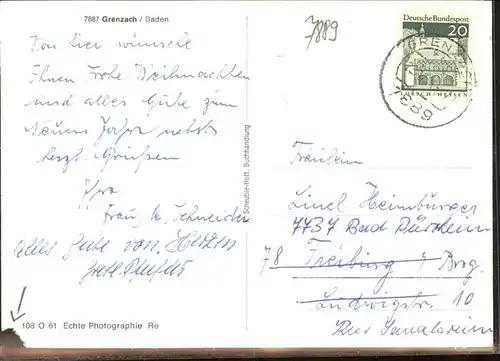 7887 Grenzach / Baden
Von hier wünsche
Ihnen Frohe Weihnachten
und alles Gute zum
Neuen Jahr nebst
herzl. Grüßen
Ihre
Frau M. Schneider
alles Gute von Herzen
108 O 61 Echte Photographie Re
Buchhandlung
7889
Deutsche Bundespost
20
LORSCH/HESSEN
GRENZACH
7889
Fräulein
Linel Heimburger
7737 Bad Dürrheim
78 Freiburg i. Brg.
Ludwigstr. 10
Kur Sanatorium